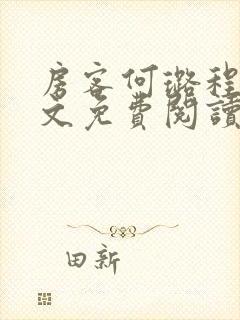 房客何璐程
文免費閱讀
田新